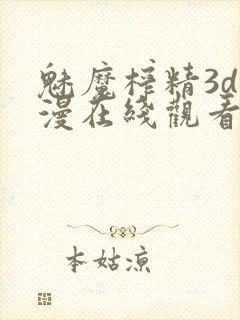 魅魔榨精3d
漫在线觀看
本姑凉